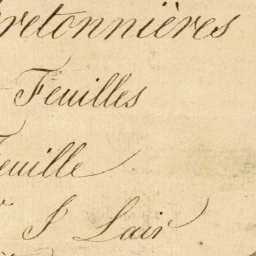 retonnières
Feuilles
euille
J Lair